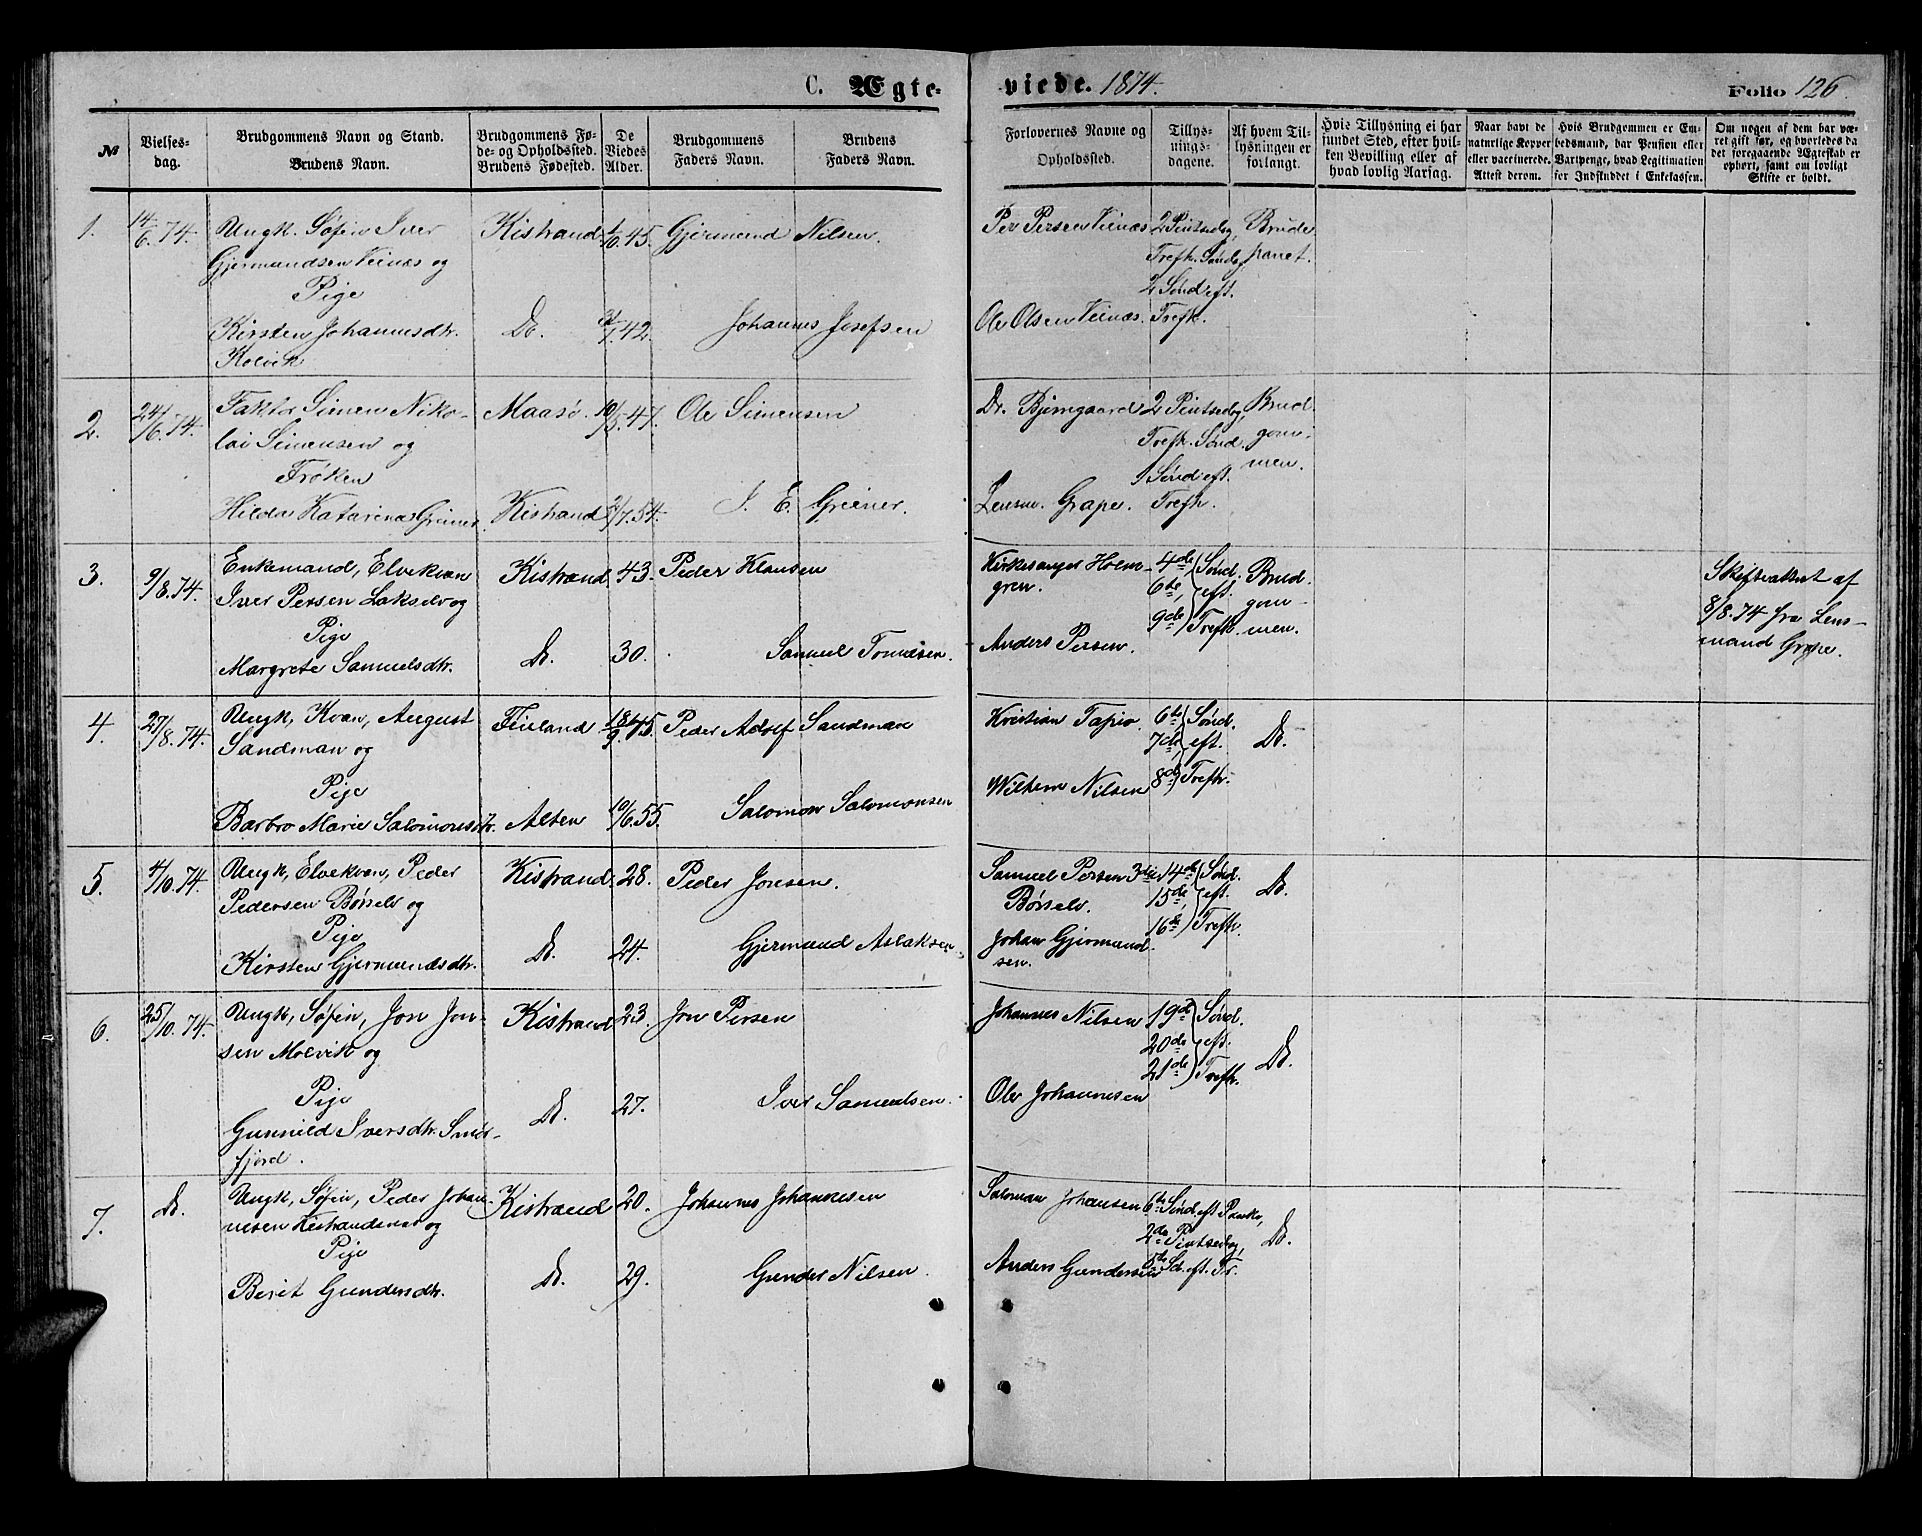 C. Ægte- viede. 1874. Folio 126.
№
Vielses-
dag.
Brudgommens Navn og Stand.
Brudens Navn.
Brudgommens Fø-
de- og Opholdssted.
Brudens Fødested.
De
Viedes
Alder.
Brudgommens
Faders Navn.
Brudens
Faders Navn.
Forlovernes Navne og
Opholdssted.
Tillys-
nings-
dagene.
Af hvem Til-
lysningen er
forlangt.
Hvis Tillysning ei har
fundet Sted, efter hvil-
ken Bevilling eller af
hvad lovlig Aarsag.
Naar havt de
naturlige Kopper
eller vaccinerede.
Attest derom.
Hvis Brudgommen er Em-
bedsmand, har Pension eller
Vartpenge, hvad Legitimation
for Indskuddet i Enkekassen.
Om nogen af dem har væ-
ret gift før, og hvorledes da
det foregaaende Ægteskab er
ophørt, samt om lovligt
Skifte er holdt.
1.
14/6.74.
Ungk. Søfin Iver
Gjermundsen Veinæs og
Pige
Kirsten Johannesdtr.
Kolvik
Kistrand
Do.
1/10.45.
/7.42.
Gjermund Nilsen.
Johannes Josefsen
Per Persen Veinæs
Ole Olsen Veinæs.
2 Pintsedg,
Trefh. Sønd,
2 Sønd eft.
Trefh.
Brude
parret.
2.
24/6.74.
Faktor Simen Niko-
lai Simensen og
Frøken
Hilda Katarina Greiner
Maasø
Kistrand
10/5.47.
2/7.54.
Ole Simensen
J. E. Greiner.
Dr. Bjerngaard
Lensm. Grape.
2 Pintsedg,
Trefh. Sønd.
1 Sønd eft.
Trefh.
Brud-
gom-
men.
3.
9/8.74.
Enkemand, Elvekvæn
Iver Persen Lakselv og
Pige
Margrete Samuelsdtr.
Kistrand
Do.
43.
30.
Peder Klausen
Samuel Tomasen.
Kirkesanger Holm-
gren.
Anders Persen.
4de, 6te, 9de Sønd. eft. Trefh.
Brud-
gom-
men.
Skifteattest af
8/8.74 fra Lens-
mand Grape.
4.
27/8.74.
Ungk, Kvæn, August
Sandman og
Pige
Barbro Marie Salomonsdtr.
Finland
Alten
18/9.45.
10/6.55.
Peder Adolf Sandman
Salomon Salomonsen
Kristian Tapio.
Wilhem Nilsen
6te 7de 8de Sønd. eft. Trefh.
Do.
5.
4/10.74.
Ungk, Elvekvæn, Peder
Pedersen Børselv og
Pige
Kirsten Gjermundsdtr.
Kistrand
Do.
28.
24.
Peder Jonsen.
Gjermund Aslaksen
Samuel Persen
Børselv.
Johan Gjermund-
sen.
14de 15de, 16de Sønd. eft. Trefh.
Do.
6.
25/10.74.
Ungk, Søfin, Jon Jon-
sen Molvik og
Pige
Gunnild Iversdtr. Smør-
fjord.
Kistrand
Do.
23.
27.
Jon Persen
Iver Samuelsen.
Johannes Nilsen
Ole Johannesen
19de 20de 21de Sønd. eft. Trefh.
Do.
7.
Do.
Ungk, Søfin, Peder Johan-
nesen Kistrandsnes og
Pige
Berit Gundersdtr.
Kistrand
Do.
20.
29.
Johannes Johannesen
Gunder Nilsen.
Saloman Johansen
Anders Gundersen
6te Sønd. eft Paaske,
2de Pintsedag,
5te Sd. eft. Tr.
Do.